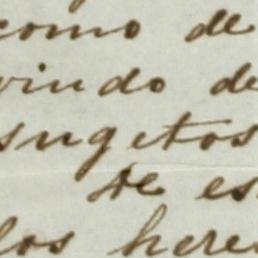 como de
vindo de
sugetos
de es
los here